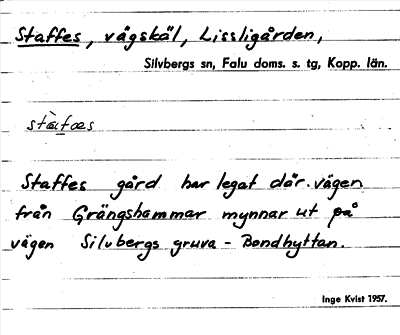 Staffes, vägskäl, Lissligården,
Silvbergs sn, Falu doms. s. tg, Kopp. län.
Staffes gård har legat där vägen
från Grängshammar mynnar ut på
vägen Silvbergs gruva - Bondhyttan.
Inge Kvist 1957.